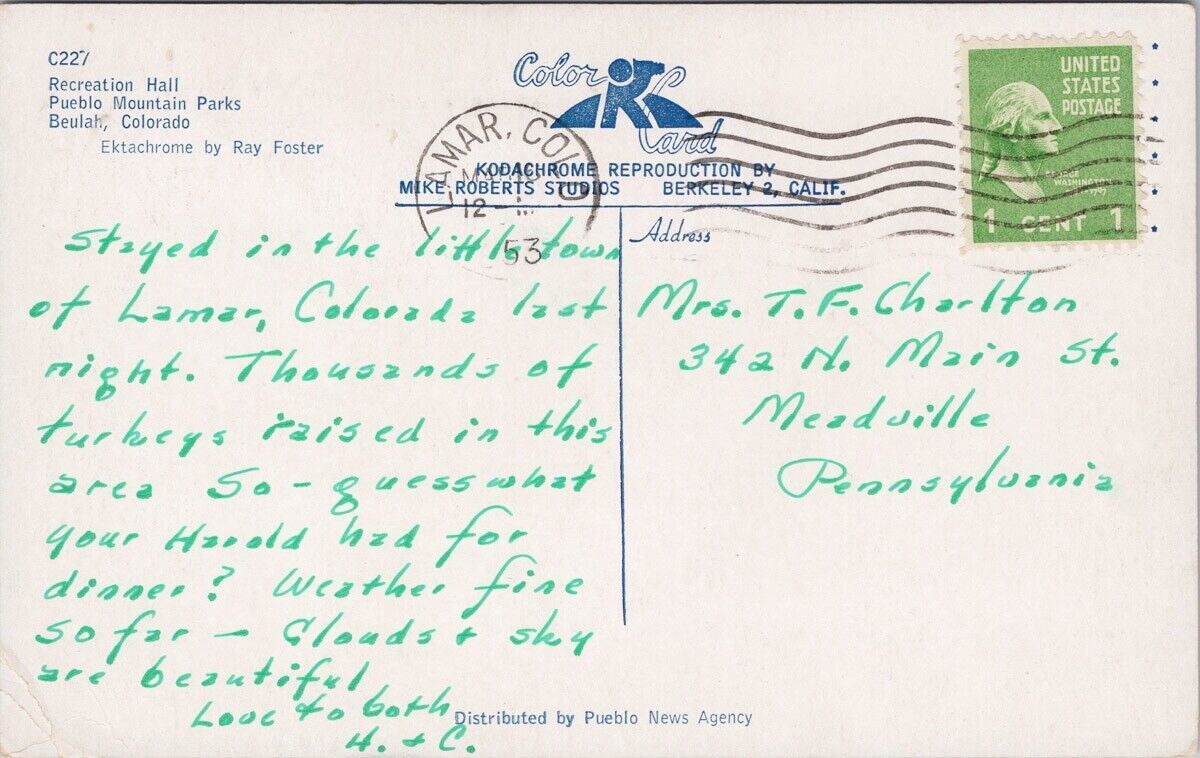 C227
Recreation Hall
Pueblo Mountain Parks
Beulah, Colorado
Ektachrome by Ray Foster
Color
K
Card
KODACHROME REPRODUCTION BY
MIKE ROBERTS STUDIOS BERKELEY 2, CALIF.
LAMAR, COLO
12-
53
UNITED
STATES
POSTAGE
GEORGE
WASHINGTON
1 CENT 1
Stayed in the little town
of Lamar, Colorado last
night. Thousands of
turkeys raised in this
area So - guess what
your Harold had for
dinner? Weather fine
so far - Clouds & sky
are beautiful
Love to both
H. & C.
Address
Mrs. T. F. Charlton
342 N. Main St.
Meadville
Pennsylvania
Distributed by Pueblo News Agency